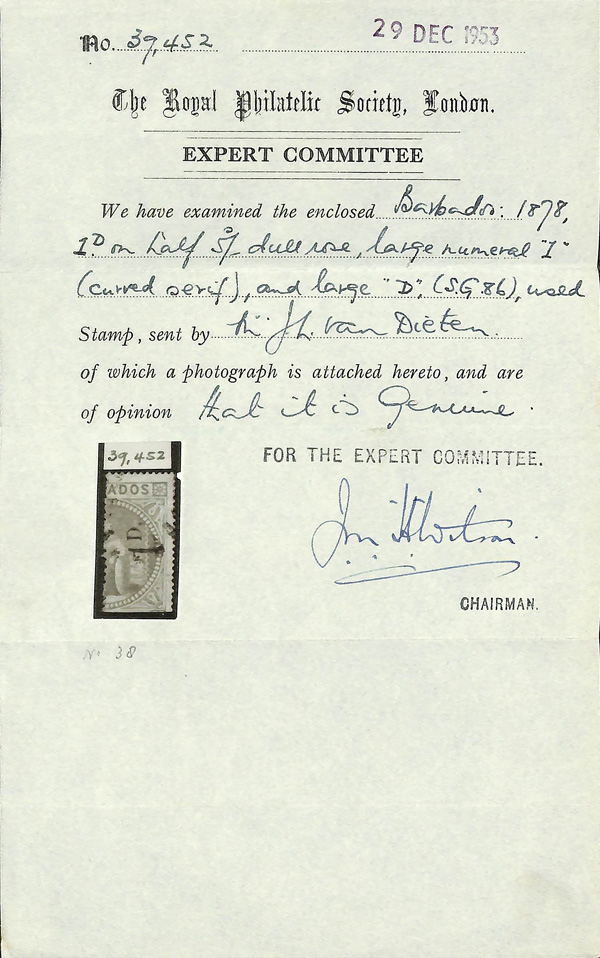 No. 39,452
29 DEC 1953
The Royal Philatelic Society, London.
EXPERT COMMITTEE
We have examined the enclosed Barbados: 1878,
1D on half 5/- dull rose, large numeral "1"
(curved serif), and large "D", (S.G 86), used
Stamp, sent by Mr J.L. van Dieten.
of which a photograph is attached hereto, and are
of opinion that it is Genuine.
39,452
FOR THE EXPERT COMMITTEE.
ADOS
1 D.
CHAIRMAN.
No 38